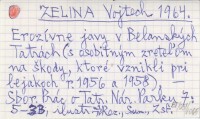 ZELINA Vojtech 1964.
Erozívne javy v Belanských
Tatrách (s osobitným zreteľom
na škody, ktoré vznikli pri
lejakoch r. 1956 a 1958).
Sbor. Prác o Tatr. Nár. Parku 7:
5-33, ilustr.